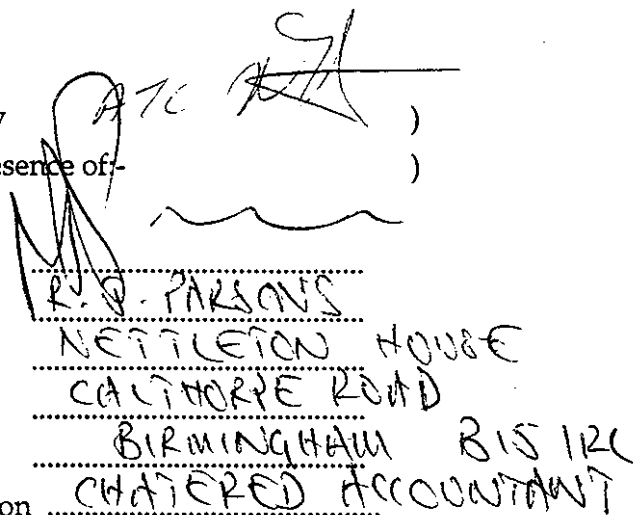 y ATC )
esence of:- )
R. P. PARSONS
NETTLETON HOUSE
CALTHORPE ROAD
BIRMINGHAM B15 1RL
on CHATERED ACCOUNTANT